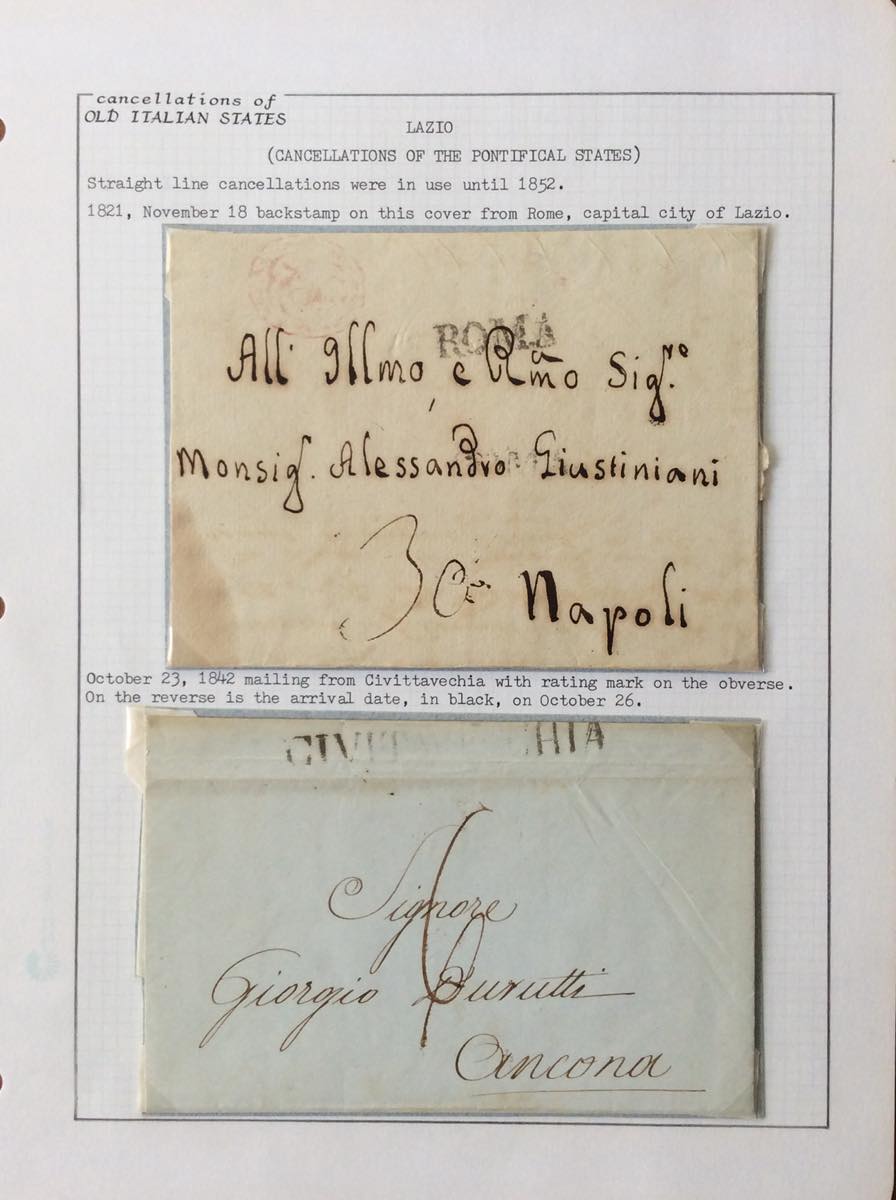 cancellations of
OLD ITALIAN STATES
LAZIO
(CANCELLATIONS OF THE PONTIFICAL STATES)
Straight line cancellations were in use until 1852.
1821, November 18 backstamp on this cover from Rome, capital city of Lazio.
ROMA
All' Illmo e Rmo Sig.re
Monsig. Alessandro Giustiniani
30
Napoli
October 23, 1842 mailing from Civittavechia with rating mark on the obverse.
On the reverse is the arrival date, in black, on October 26.
CIVI HIA
Signore
Giorgio Durutti
Ancona